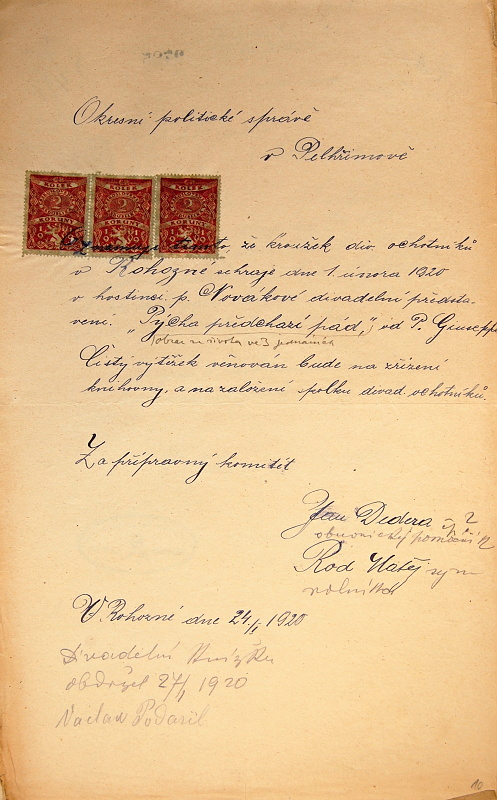 Okresní politické správě
v Pelhřimově
KOLEK KOLEK KOLEK
2 2 2
KORUNY KORUNY KORUNY
Oznamuje tímto, že kroužek div. ochotníků
v Rohozné sehraje dne 1. února 1920
v hostinci p. Novákové divadelní předsta-
vení: „Pýcha předchází pád,“ od P. Giuseppe
obraz ze života ve 3 jednáních
Čistý výtěžek věnován bude na zřízení
knihovny, a na založení spolku divad. ochotníků.
Za přípravný komitét
Jan Dedera čp 2
obuvnický pomocník
Rod Matěj syn
rolníka
V Rohozné dne 24./I 1920
Divadelní knížku
obdržel 27/I 1920
Václav Podařil
10